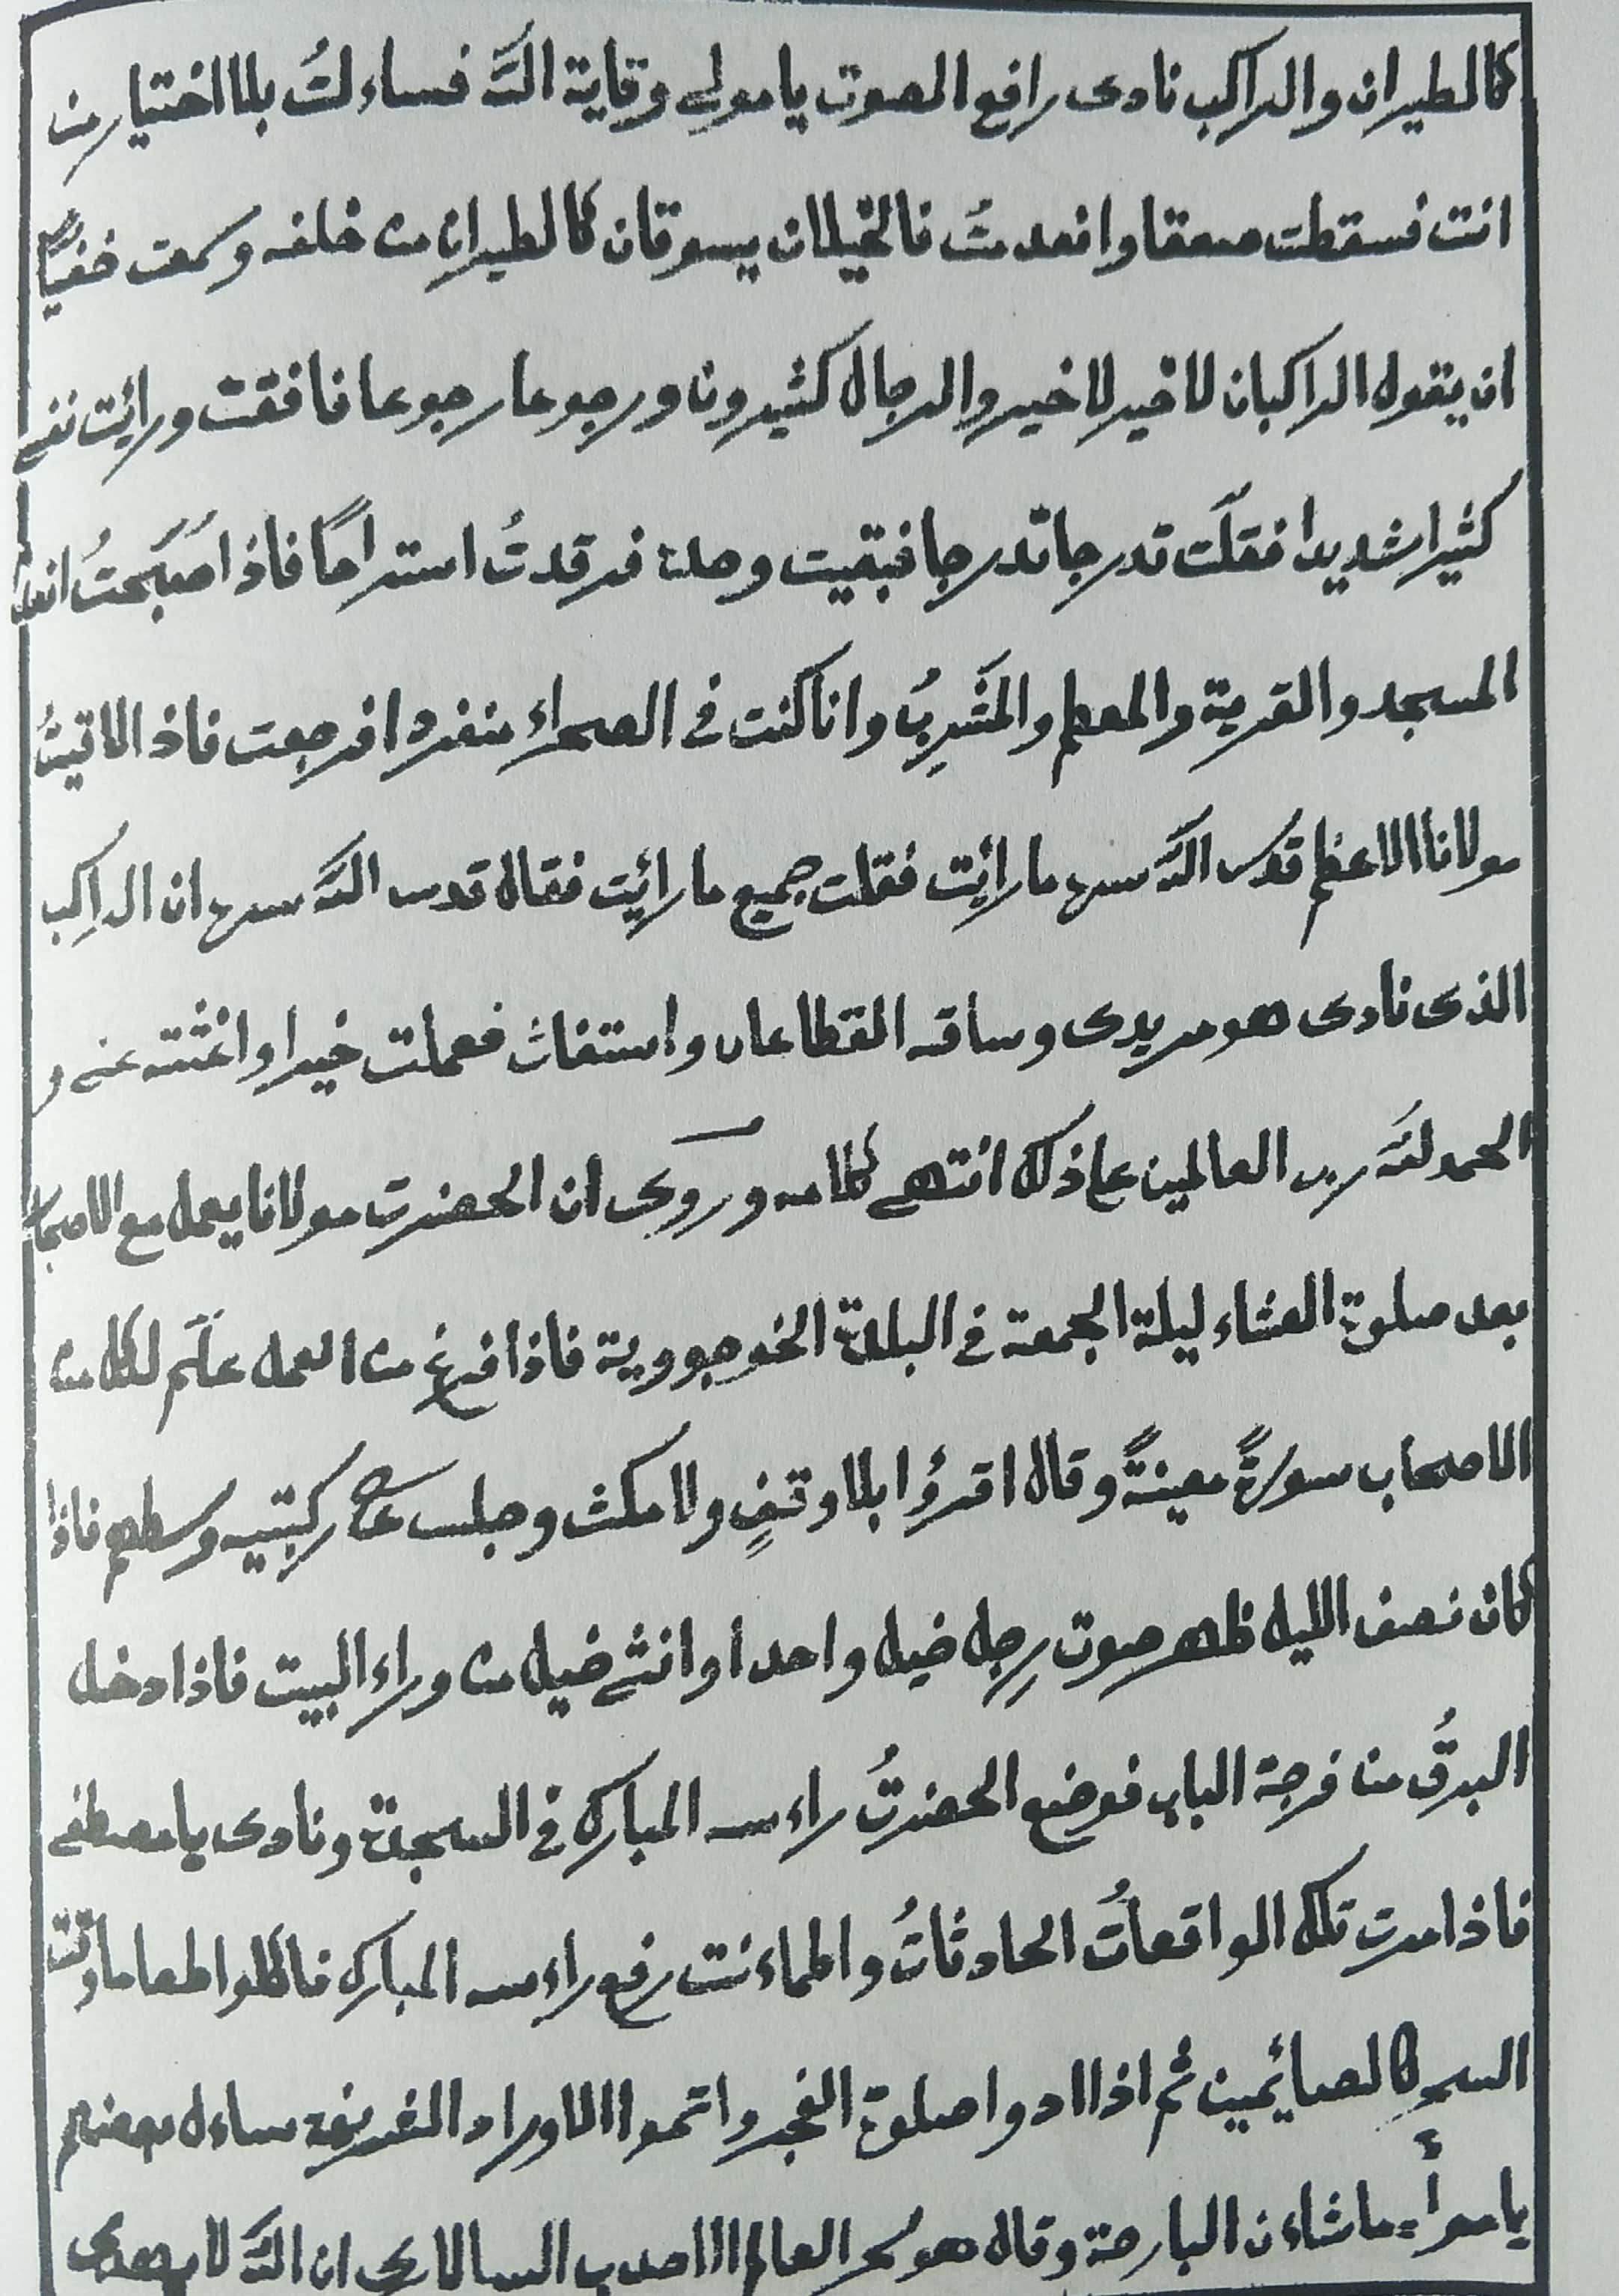 كالطيران والراكب نادى رافع الصوت يا مولى وقاية الله فساءلتُ بلا اختيار من
انت فسقطت صعقا وانعدمتُ فالخيلان يسوقان كالطيران من خلفه وسمعت خفيًّا
ان يقول الراكبان لا خير لا خير والرجال كثيرون ورجوعا رجوعا فافقت ورائت نفسى
كثيرا شديدا فقلّت تدرجا تدرجا فبقيت وحدى فرقدتُ استراحًا فاذا اصبَحتُ انعدم
المسجد والقرية والمعلم والمَشْرِبُ وانا كنت فى الصحراء منفردا فرجعت فاذا لاقيتُ
مولانا الاعظم قدس الله سره ما رائت فقلت جميع ما رايت فقال قدس الله سره ان الراكِب
الذى نادى هو مريدى وساقه القطاعان واستغاث فعملت خيرا واغثته عنى و
الحمد لله رب العالمين على ذلك انتهى كلامه وروى ان الحضرت مولانا يعمل مع الاصحاب
بعد صلوة العشاء ليلة الجمعة فى البلدة الخوجووية فاذا فرغ من العمل علّم لكل من
الاصحاب سورةً معينةً وقال اقرؤا بلا وقفٍ ولا مكث وجلس على ركبتيه وسطهم فاذا
كان نصف الليل ظهر صوت رِجلِ خيل واحد او انثى خيل من وراء البيت فاذا دخل
البرقُ من فرجة الباب فوضع الحضرتُ راءسه المبارك فى السجدة ونادى يا مصطفى
فاذا مرت تلك الواقعاتُ الحادثاتُ واطماءنت رفع راءسه المبارك فاكلوا طعاما وقت
السحر كالصائمين ثم اذا ادوا صلوة الفجر واتموا الاوراد الشريفة ساءل بعضهم
ما شاءن البارحة وقال هو العالم ان الله لا يهدى